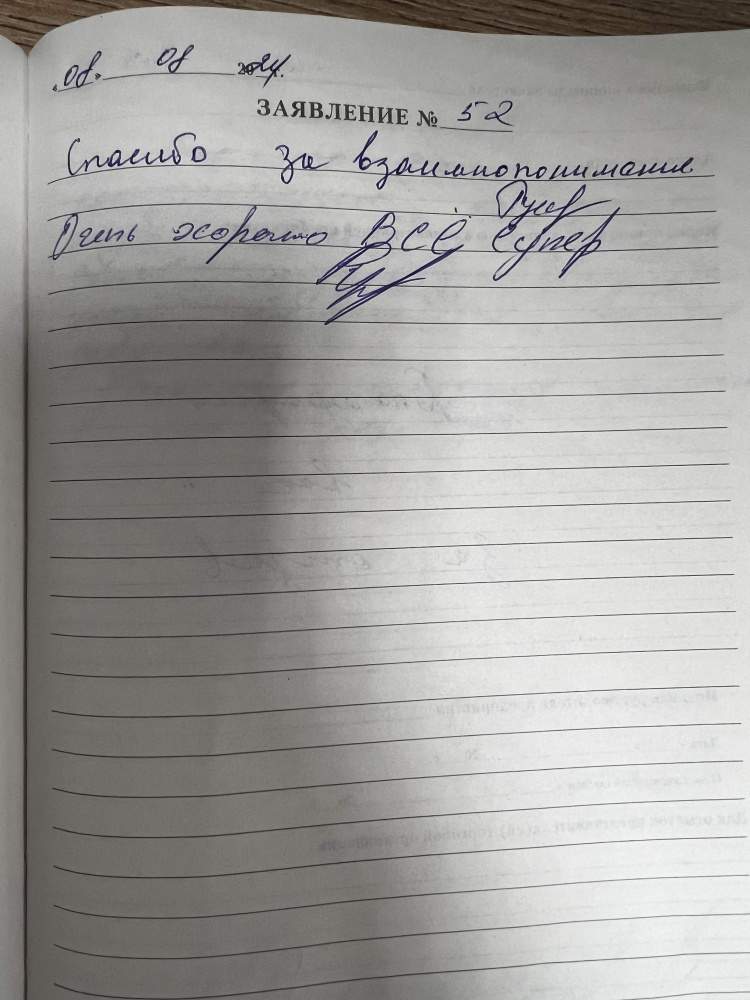 "08" 08 2024.
ЗАЯВЛЕНИЕ № 52
Спасибо за взаимнопонимания
Очень хорошо ВСЁ супер